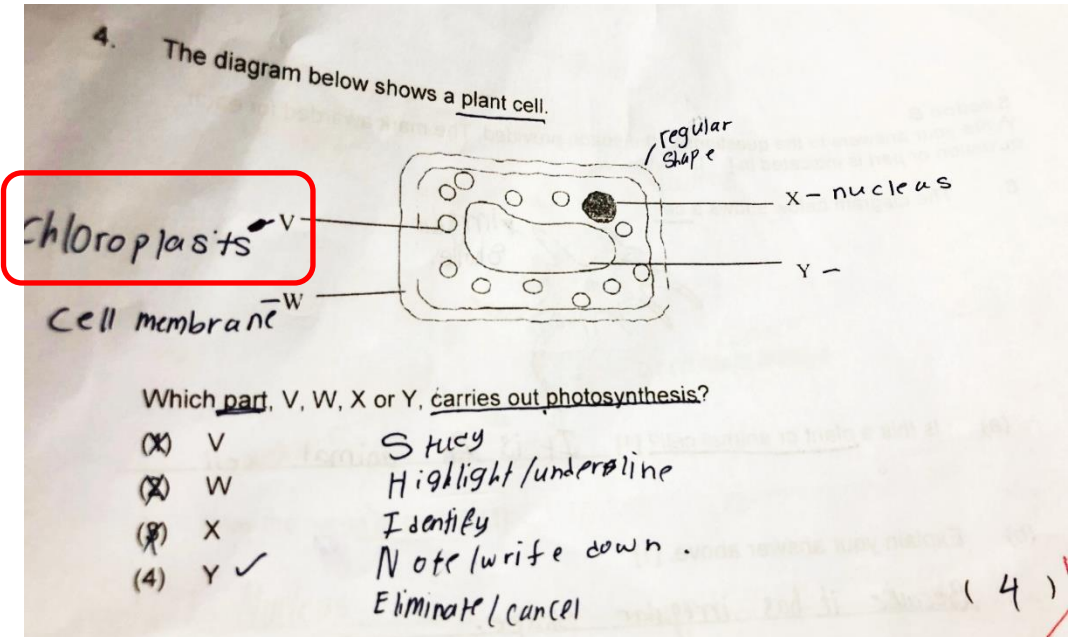 4. The diagram below shows a plant cell.
regular
shape
X – nucleus
chloroplasts – V
Y –
– W
cell membrane
Which part, V, W, X or Y, carries out photosynthesis?
(1) V
(2) W
(3) X
(4) Y ✓
Stucy
Highlight/underline
Identify
Note/write down.
Eliminate/cancel
(4)